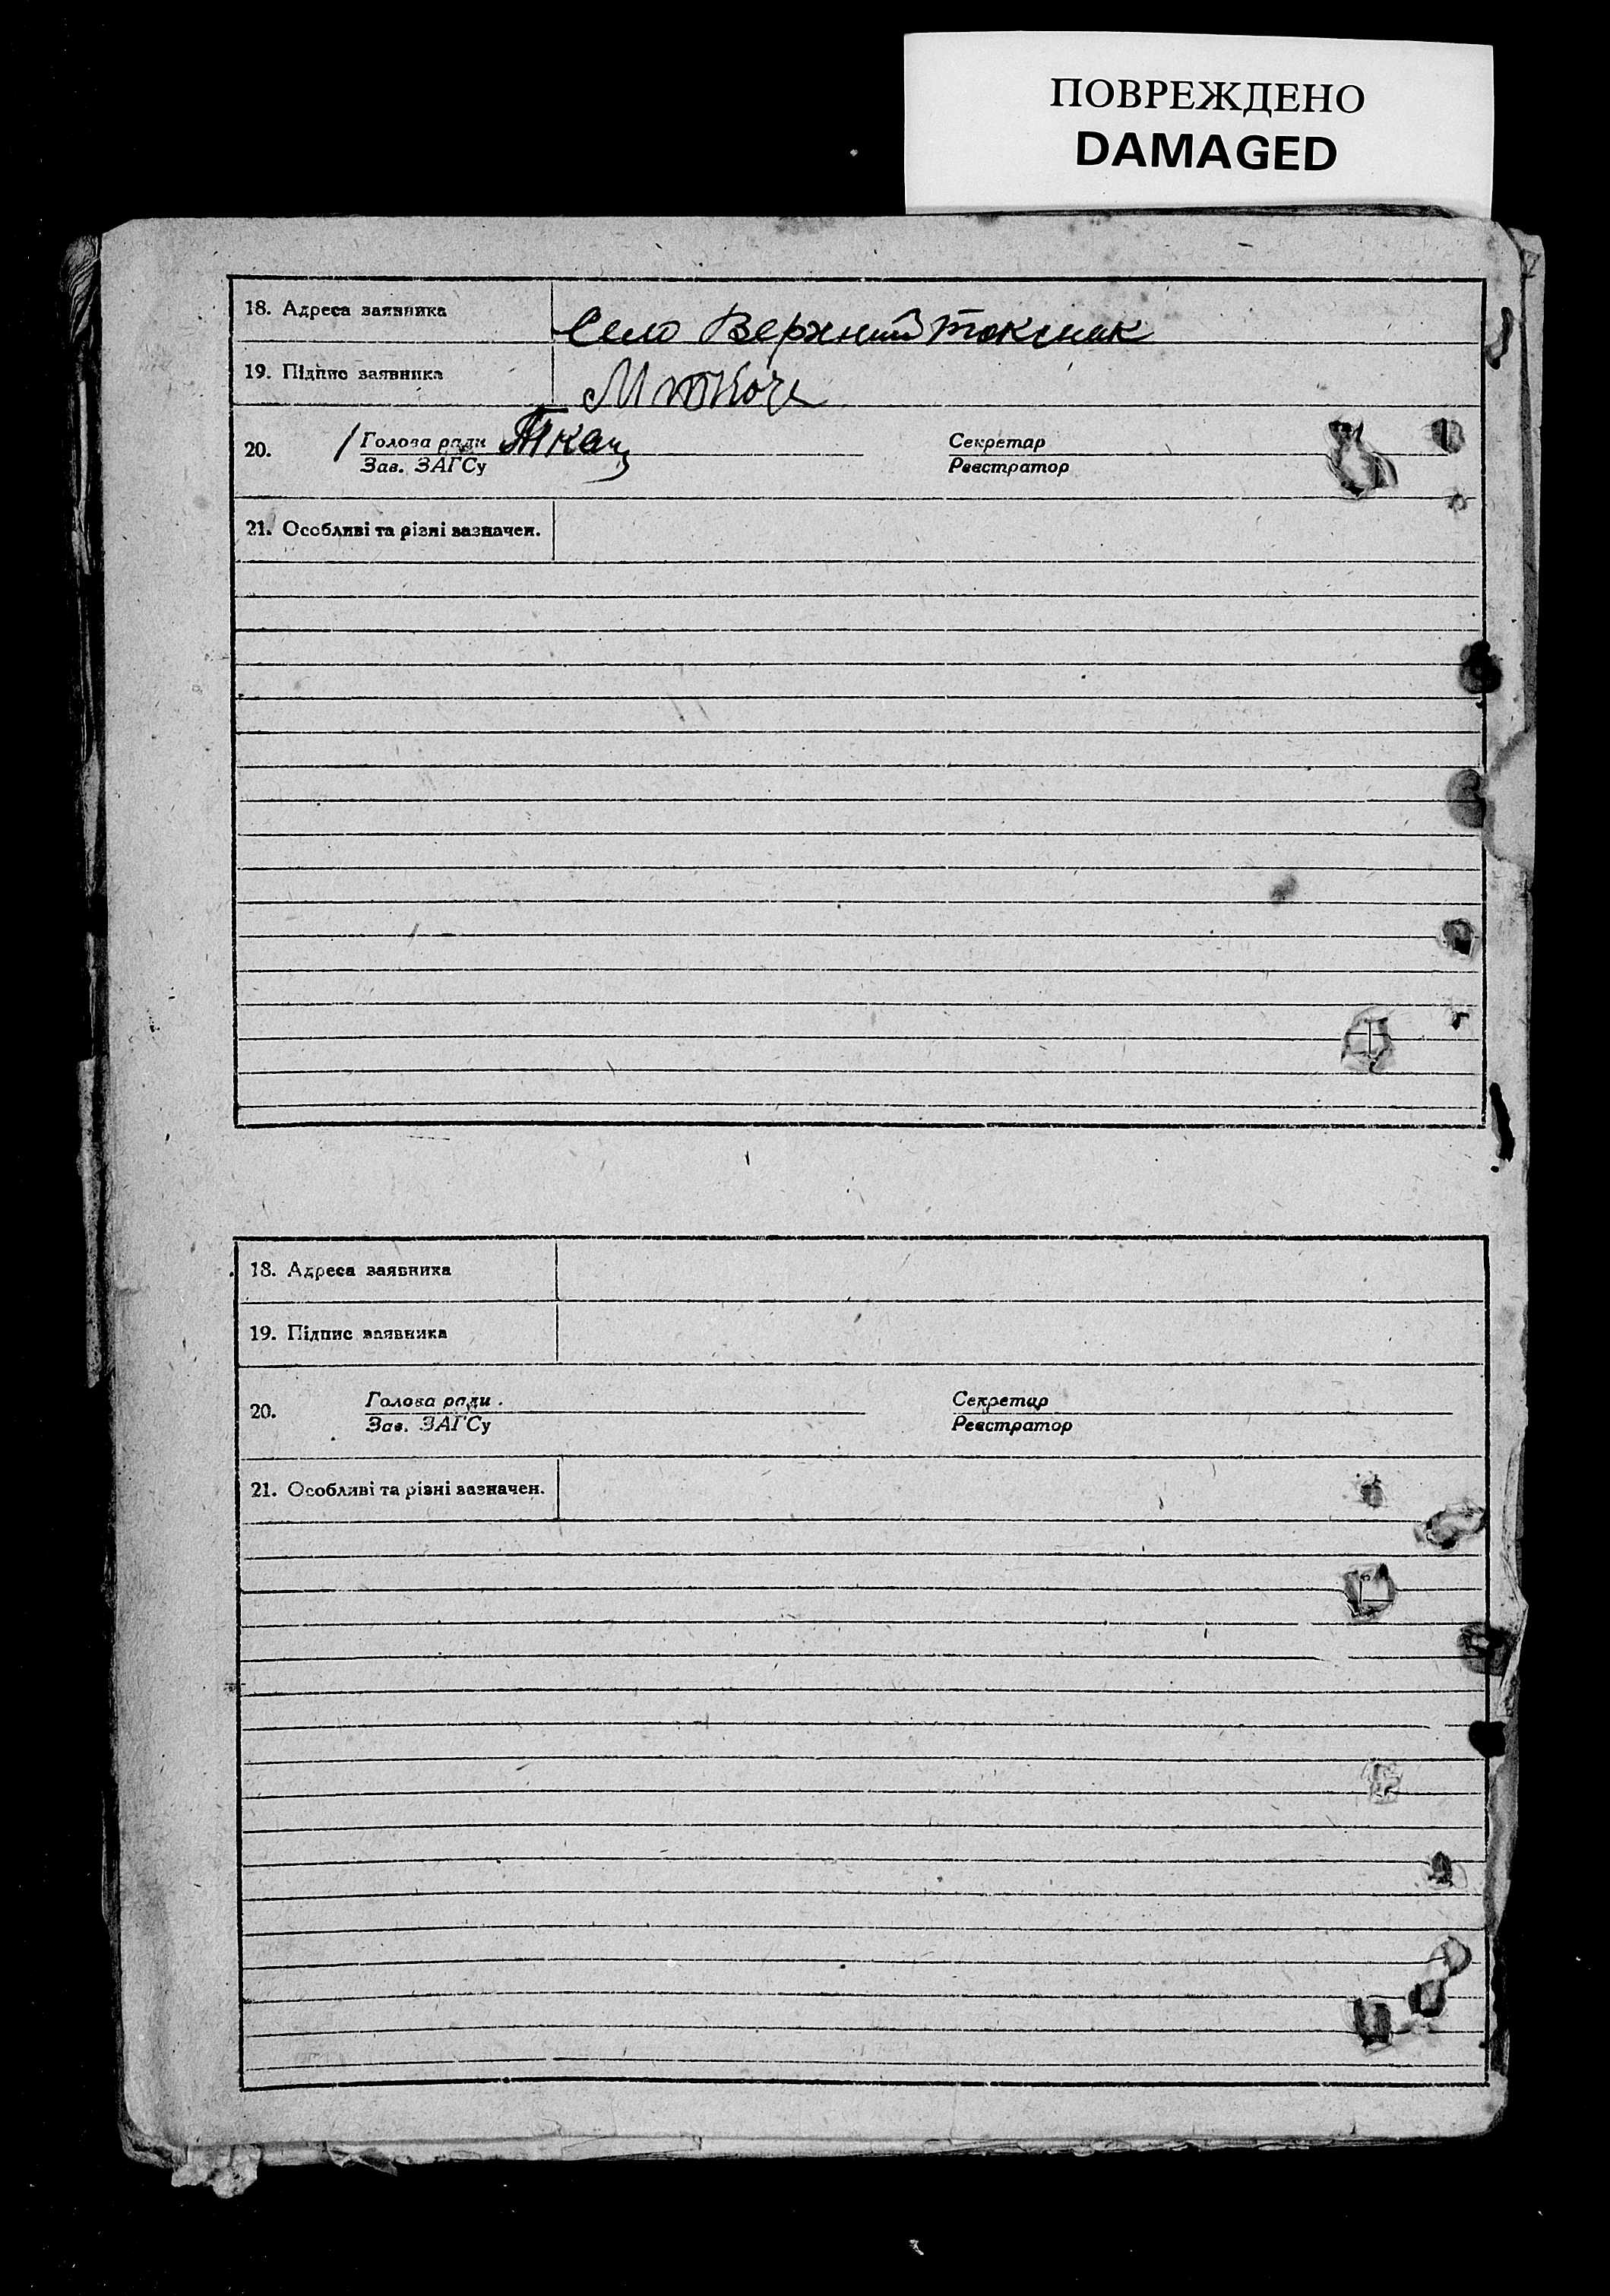 ПОВРЕЖДЕНО
DAMAGED
18. Адреса заявника
Село Верхний Токмак
19. Підпис заявника
20. Голова ради Ткач
Зав. ЗАГСу
Секретар
Реєстратор
21. Особливі та різні зазначен.
18. Адреса заявника
19. Підпис заявника
20. Голова ради
Зав. ЗАГСу
Секретар
Реєстратор
21. Особливі та різні зазначен.